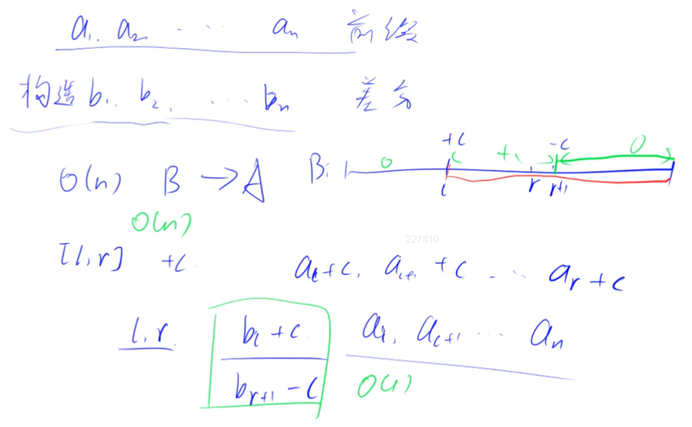 a₁, a₂ ... aₙ 前缀
构造 b₁, b₂, ... bₙ 差分
O(n) B → A
O(n)
B: 0 +c +c -c 0
l r r+1
227810
[l, r] +c
a_l+c, a_{l+1}+c ... a_r+c
l, r
b_l+c
b_{r+1}-c
a_l, a_{l+1} ... aₙ
O(1)